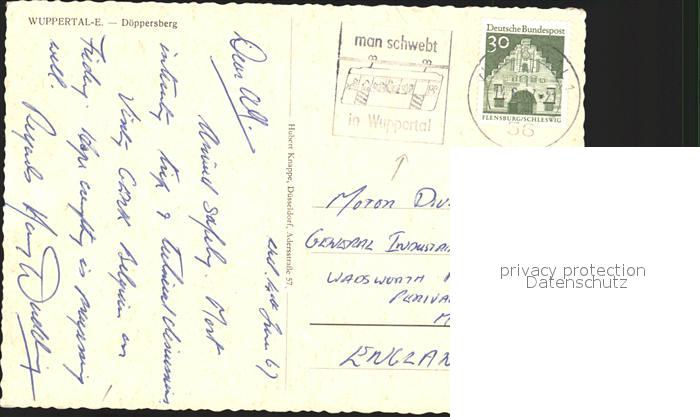 WUPPERTAL-E. — Döppersberg
Dear All.
Arrived safely. Most
interesting trip & technical discussions
Visit Belgium on
Friday. Hope everything is progressing
well.
Regards
Hubert Knappe, Düsseldorf, Adersstraße 57
man schwebt
in Wuppertal
Deutsche Bundespost
30
FLENSBURG/SCHLESWIG
56
MOTOR DIV
GENERAL INDUSTR
WADSWORTH
PERIVA
M
ENGLAN
privacy protection
Datenschutz